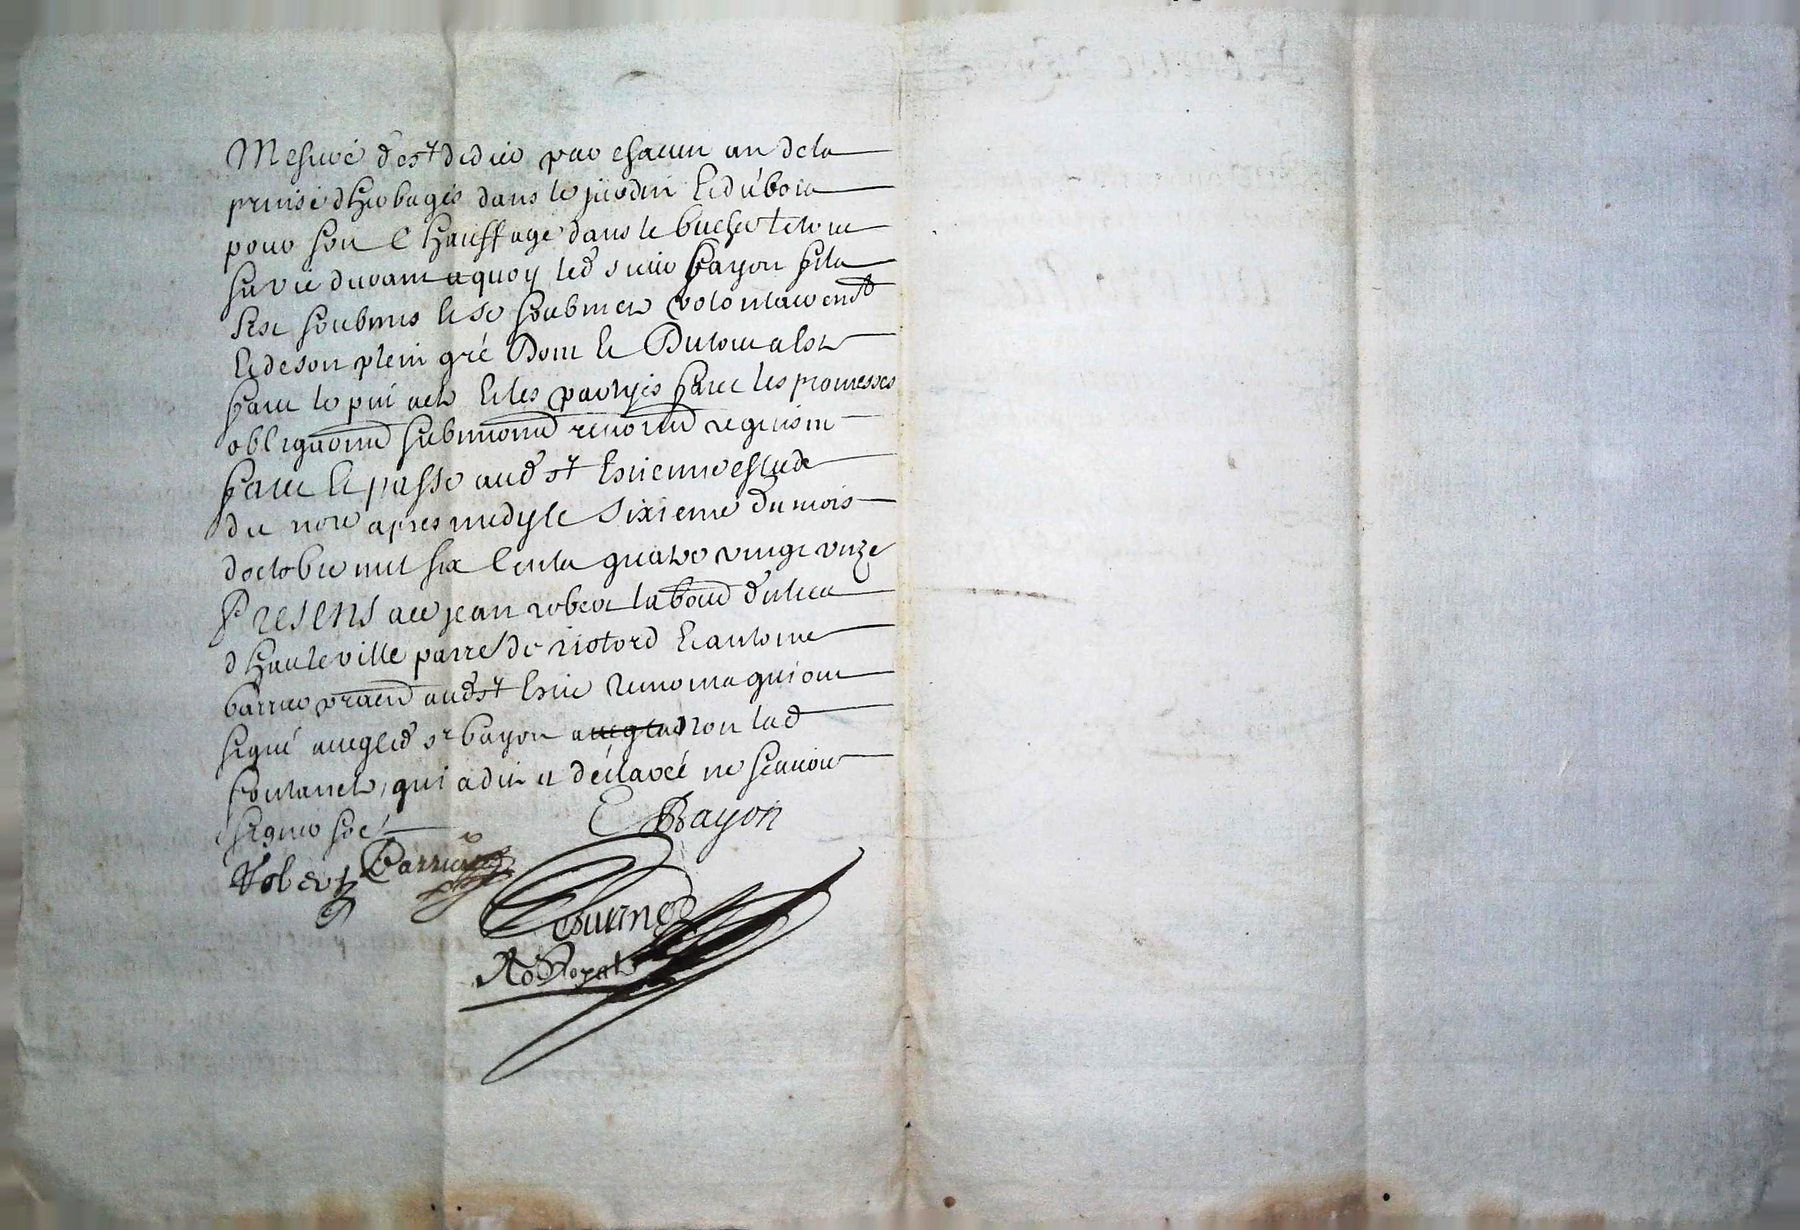 Mesure de st didier par chacun an dela
prinse dherbages dans le jardin Et du bois
pour son Chauffage dans le bucher Et ce
sa vie durant a quoy led sieur bayon sila
sest soubmis Et se soubmet volontairemt
Et de son plein gré Dont Et Du tout a este
faict le pnt acte Et les partyes faict les promesses
obligaons submissions renons requises
faict Et passé aud st Estienne estude
du nore apres midy le sixieme du mois
doctobre mil six Cents quatre vingt unze
Presens ace jean robert labour du lieu
dhauteville parre de riotord Et antoine
barrier praen aud st Esne qui ont
signé avec led sr bayon non lad
fontanel, qui a dit et déclaré ne scavoir
signer soe
Bayon
Robert Barrier